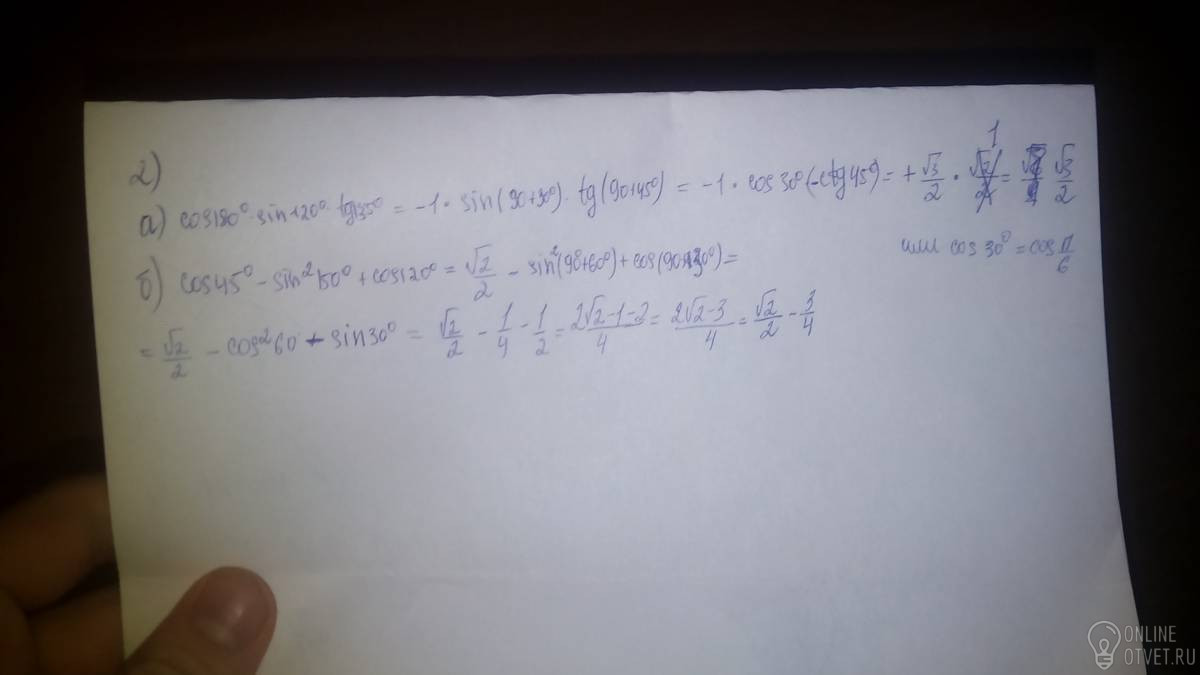 2)
а) cos180°·sin120°·tg135° = -1·sin(90+30°)·tg(90+45°) = -1·cos30°(-ctg45°) = +√3/2 · 1 = √3/2
или cos30° = cos π/6
б) cos45° - sin²150° + cos120° = √2/2 - sin²(90+60°) + cos(90+30°) =
= √2/2 - cos²60 - sin30° = √2/2 - 1/4 - 1/2 = (2√2-1-2)/4 = (2√2-3)/4 = √2/2 - 3/4
ONLINE
OTVET.RU